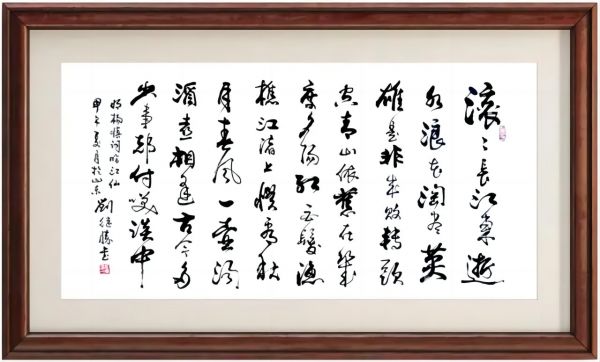 滚〻長江東逝
水浪花淘尽英
雄是非成敗轉頭
空青山依舊在幾
度夕陽红白髮漁
樵江渚上慣看秋
月春风一壶濁
酒喜相逢古今多
少事都付笑谈中
明楊慎词临江仙
甲午夏月於山东劉继勝书